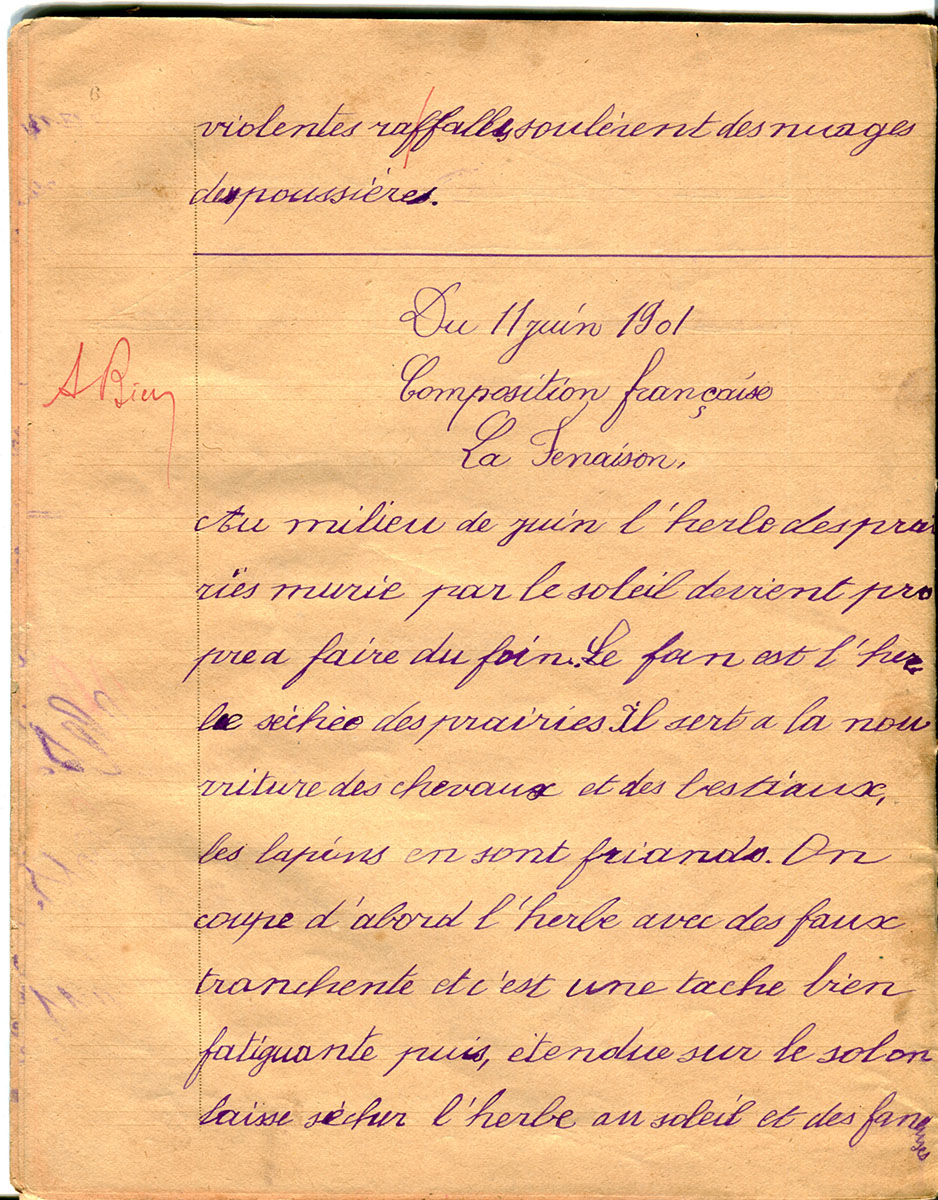 6
violentes raffalles, soulèrent des nuages
des poussières.
Du 11 juin 1901
A Bien
Composition françaïse
La Fenaison.
Au milieu de juin l'herbe des prai
riës murie par le soleil devient pro
pre a faire du foin. Le foin est l'her
be séchée des prairies. Il sert a la nou
rriture des chevaux et des bestiaux,
les lapins en sont friands. On
coupe d'abord l'herbe avec des faux
tranchente et c'est une tache bien
fatiguante puis, étendue sur le sol on
laisse sècher l'herbe au soleil et des faneuses